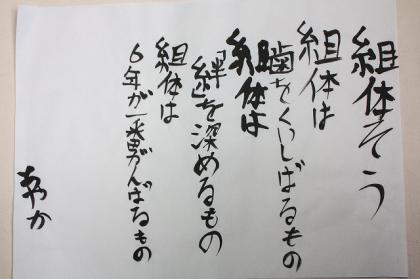 組体そう
組体は
歯をくいしばるもの
組体は
「絆」を深めるもの
組体は
6年が一番がんばるもの
あやか